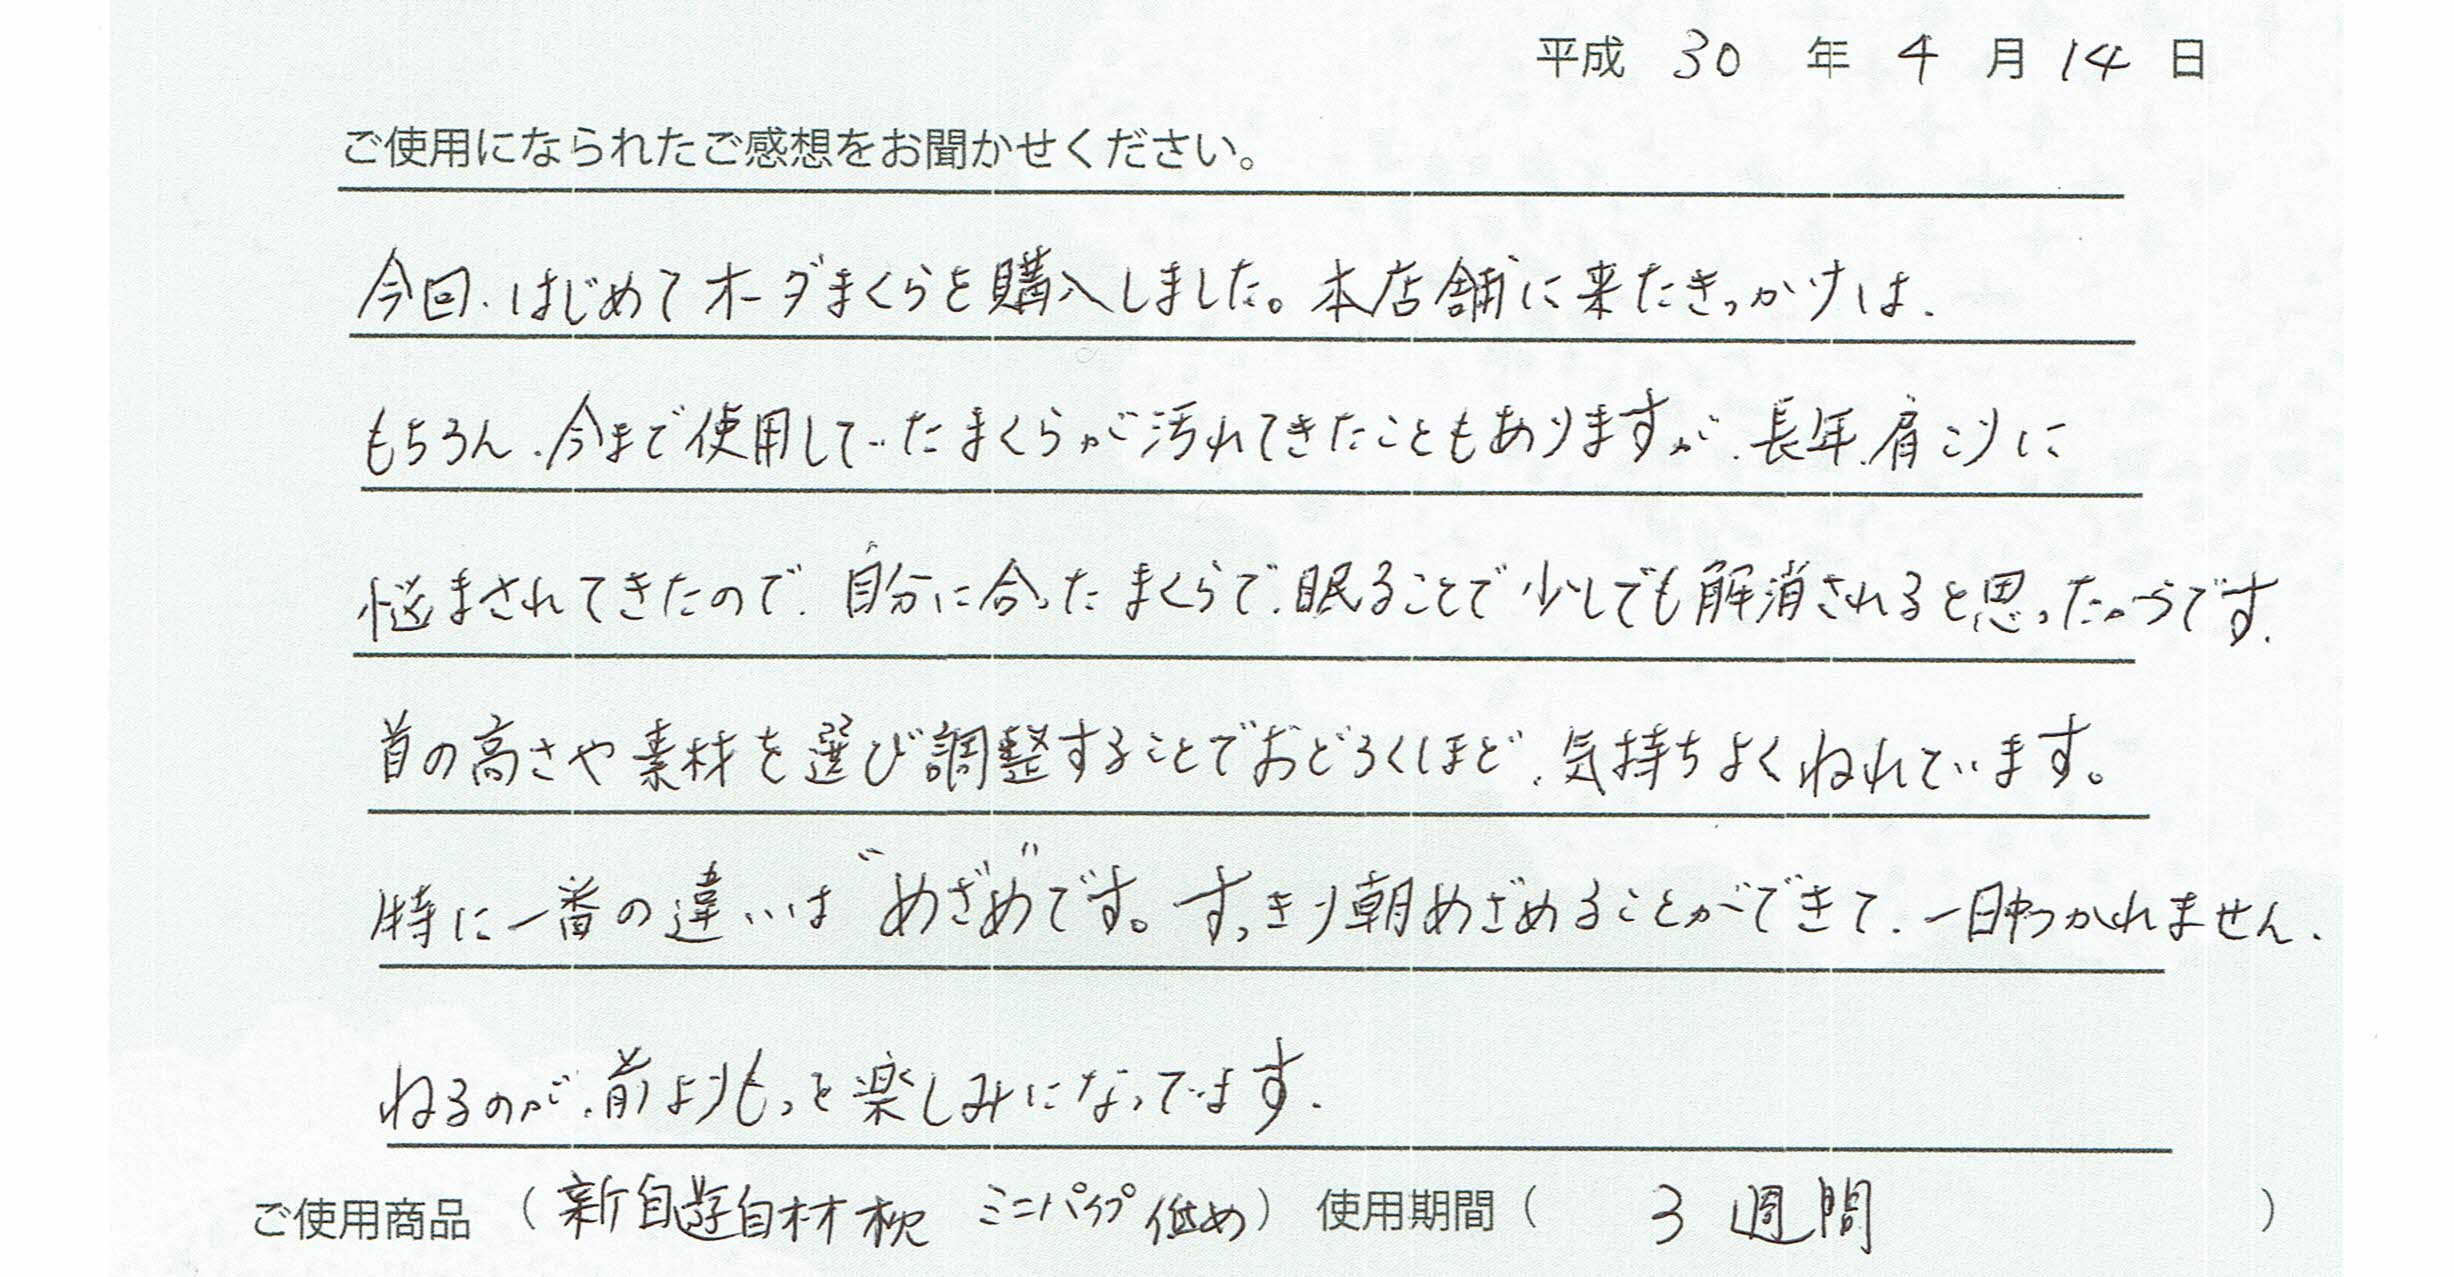 平成 30 年 4 月 14 日
ご使用になられたご感想をお聞かせください。
今回、はじめてオーダまくらを購入しました。本店舗に来たきっかけは、
もちろん、今まで使用していたまくらが汚れてきたこともありますが、長年、肩こりに
悩まされてきたので、自分に合ったまくらで、眠ることで少しでも解消されると思ったからです。
首の高さや素材を選び調整することでおどろくほど、気持ちよくねれています。
特に一番の違いは“めざめ”です。すっきり朝めざめることができて、一日中つかれません。
ねるのが、前よりもっと楽しみになっています。
ご使用商品 (新自遊自材枕 ミニパイプ 低め) 使用期間 ( 3週間 )